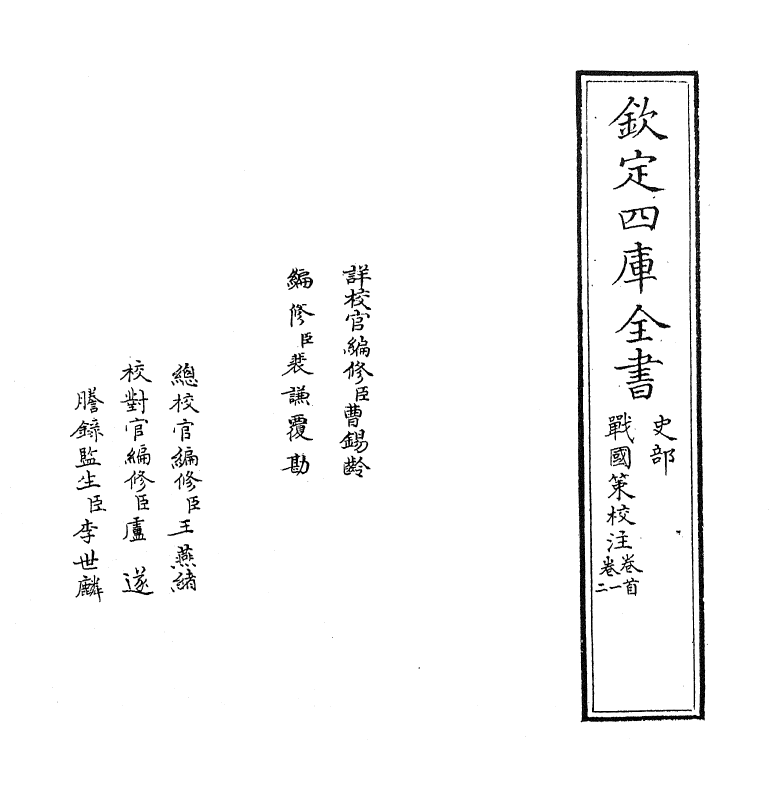 欽定四庫全書
史部
戰國策校注卷首
卷一二
詳校官編修臣曹錫齡
編修臣裴謙覆勘
總校官編修臣王燕緒
校對官編修臣盧遂
謄錄監生臣李世麟